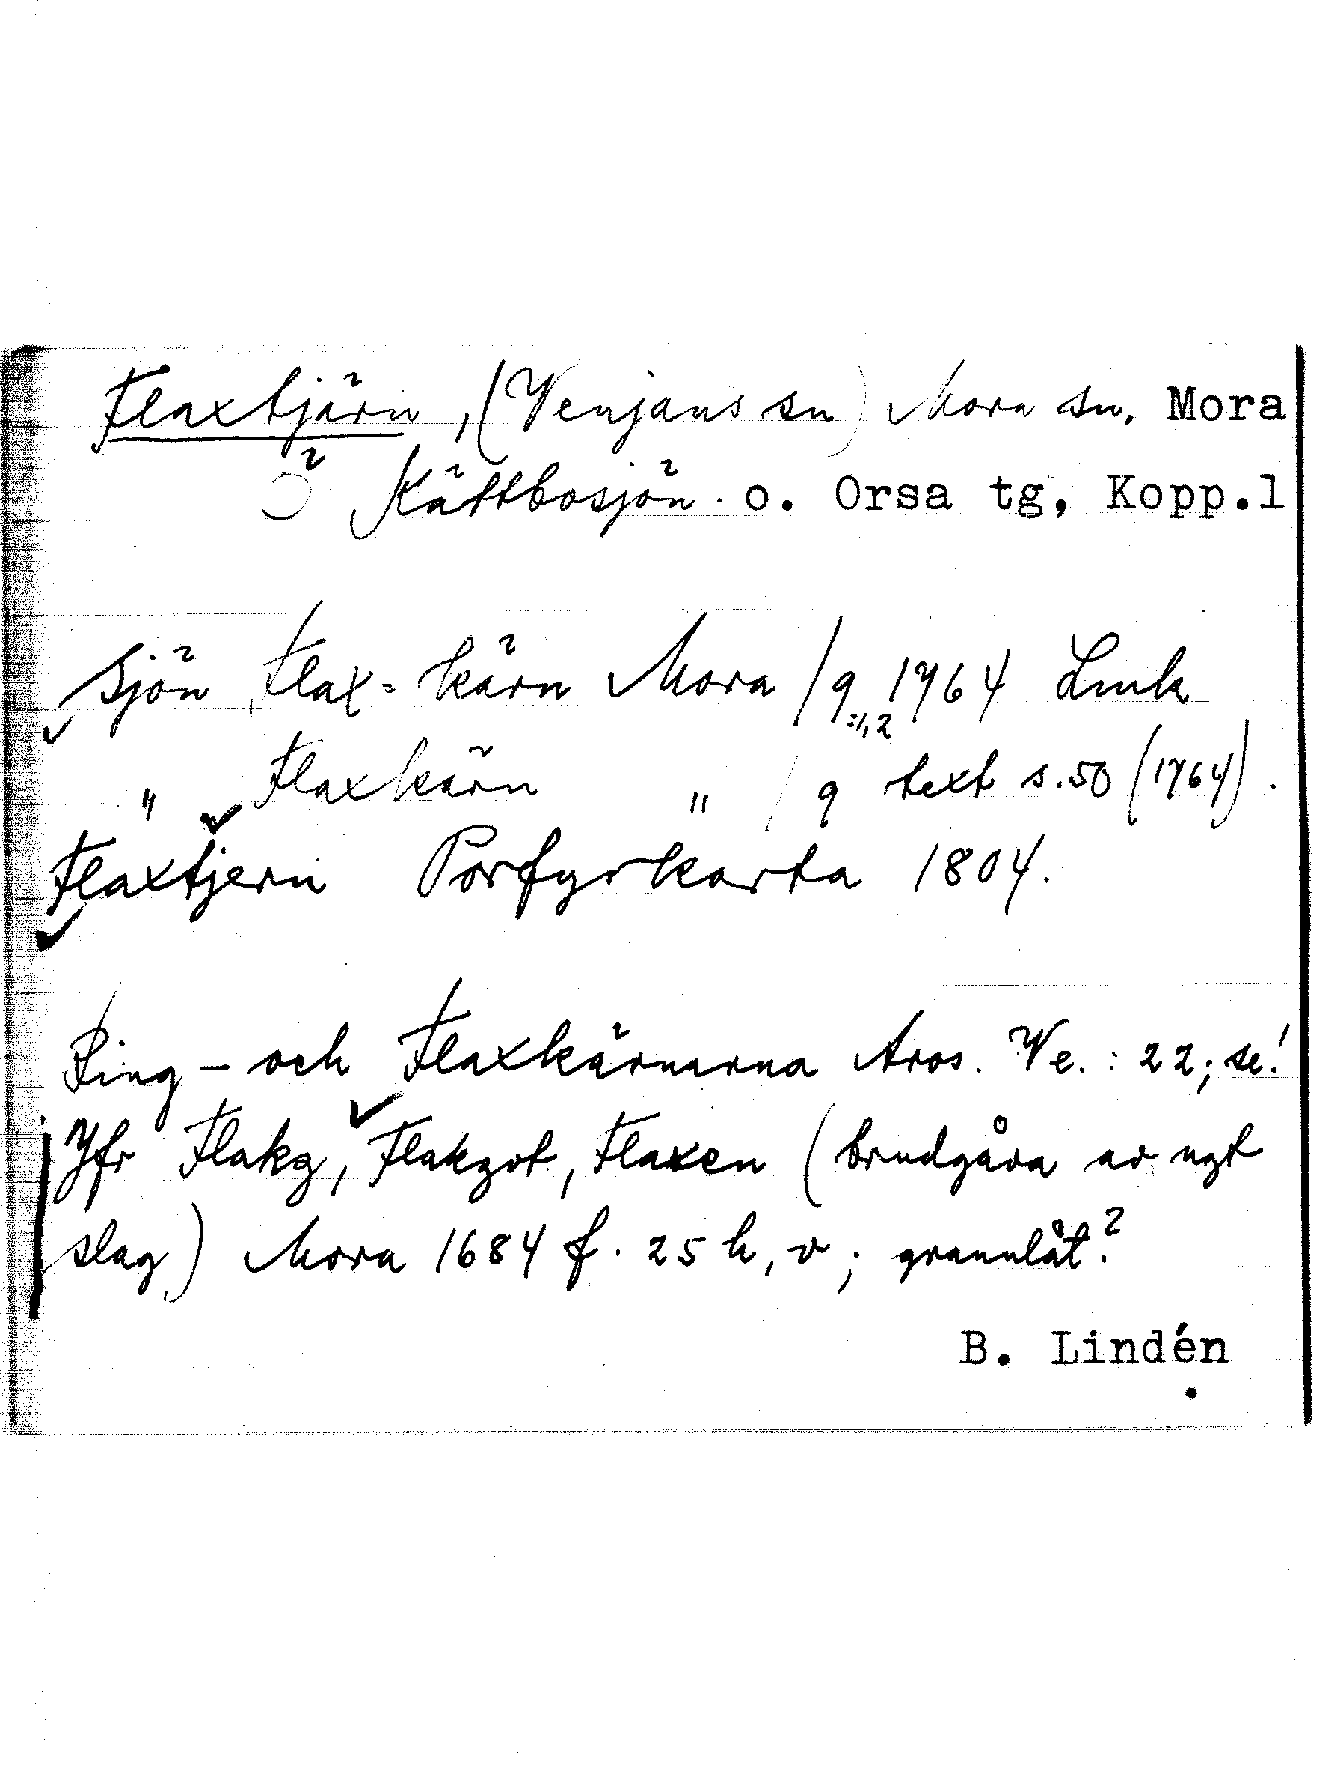 Flaxtjärn, (Venjans sn) Mora sn, Mora
Ö Kättbosjön. o. Orsa tg, Kopp.l
sjön Flax=kärn Mora / 9 1764 Lmk
" Flaxkärn " / 9 text s.50 (1764).
Flaxtjern Porfyrkarta 1804.
Ring- och Flaxkärnarna Aros. Ve.: 22; se!
Jfr Flakg, Flakgot, Flaxen (brudgåva av ngt
slag) Mora 1684 f. 25 h, v; grannlåt?
B. Lindén